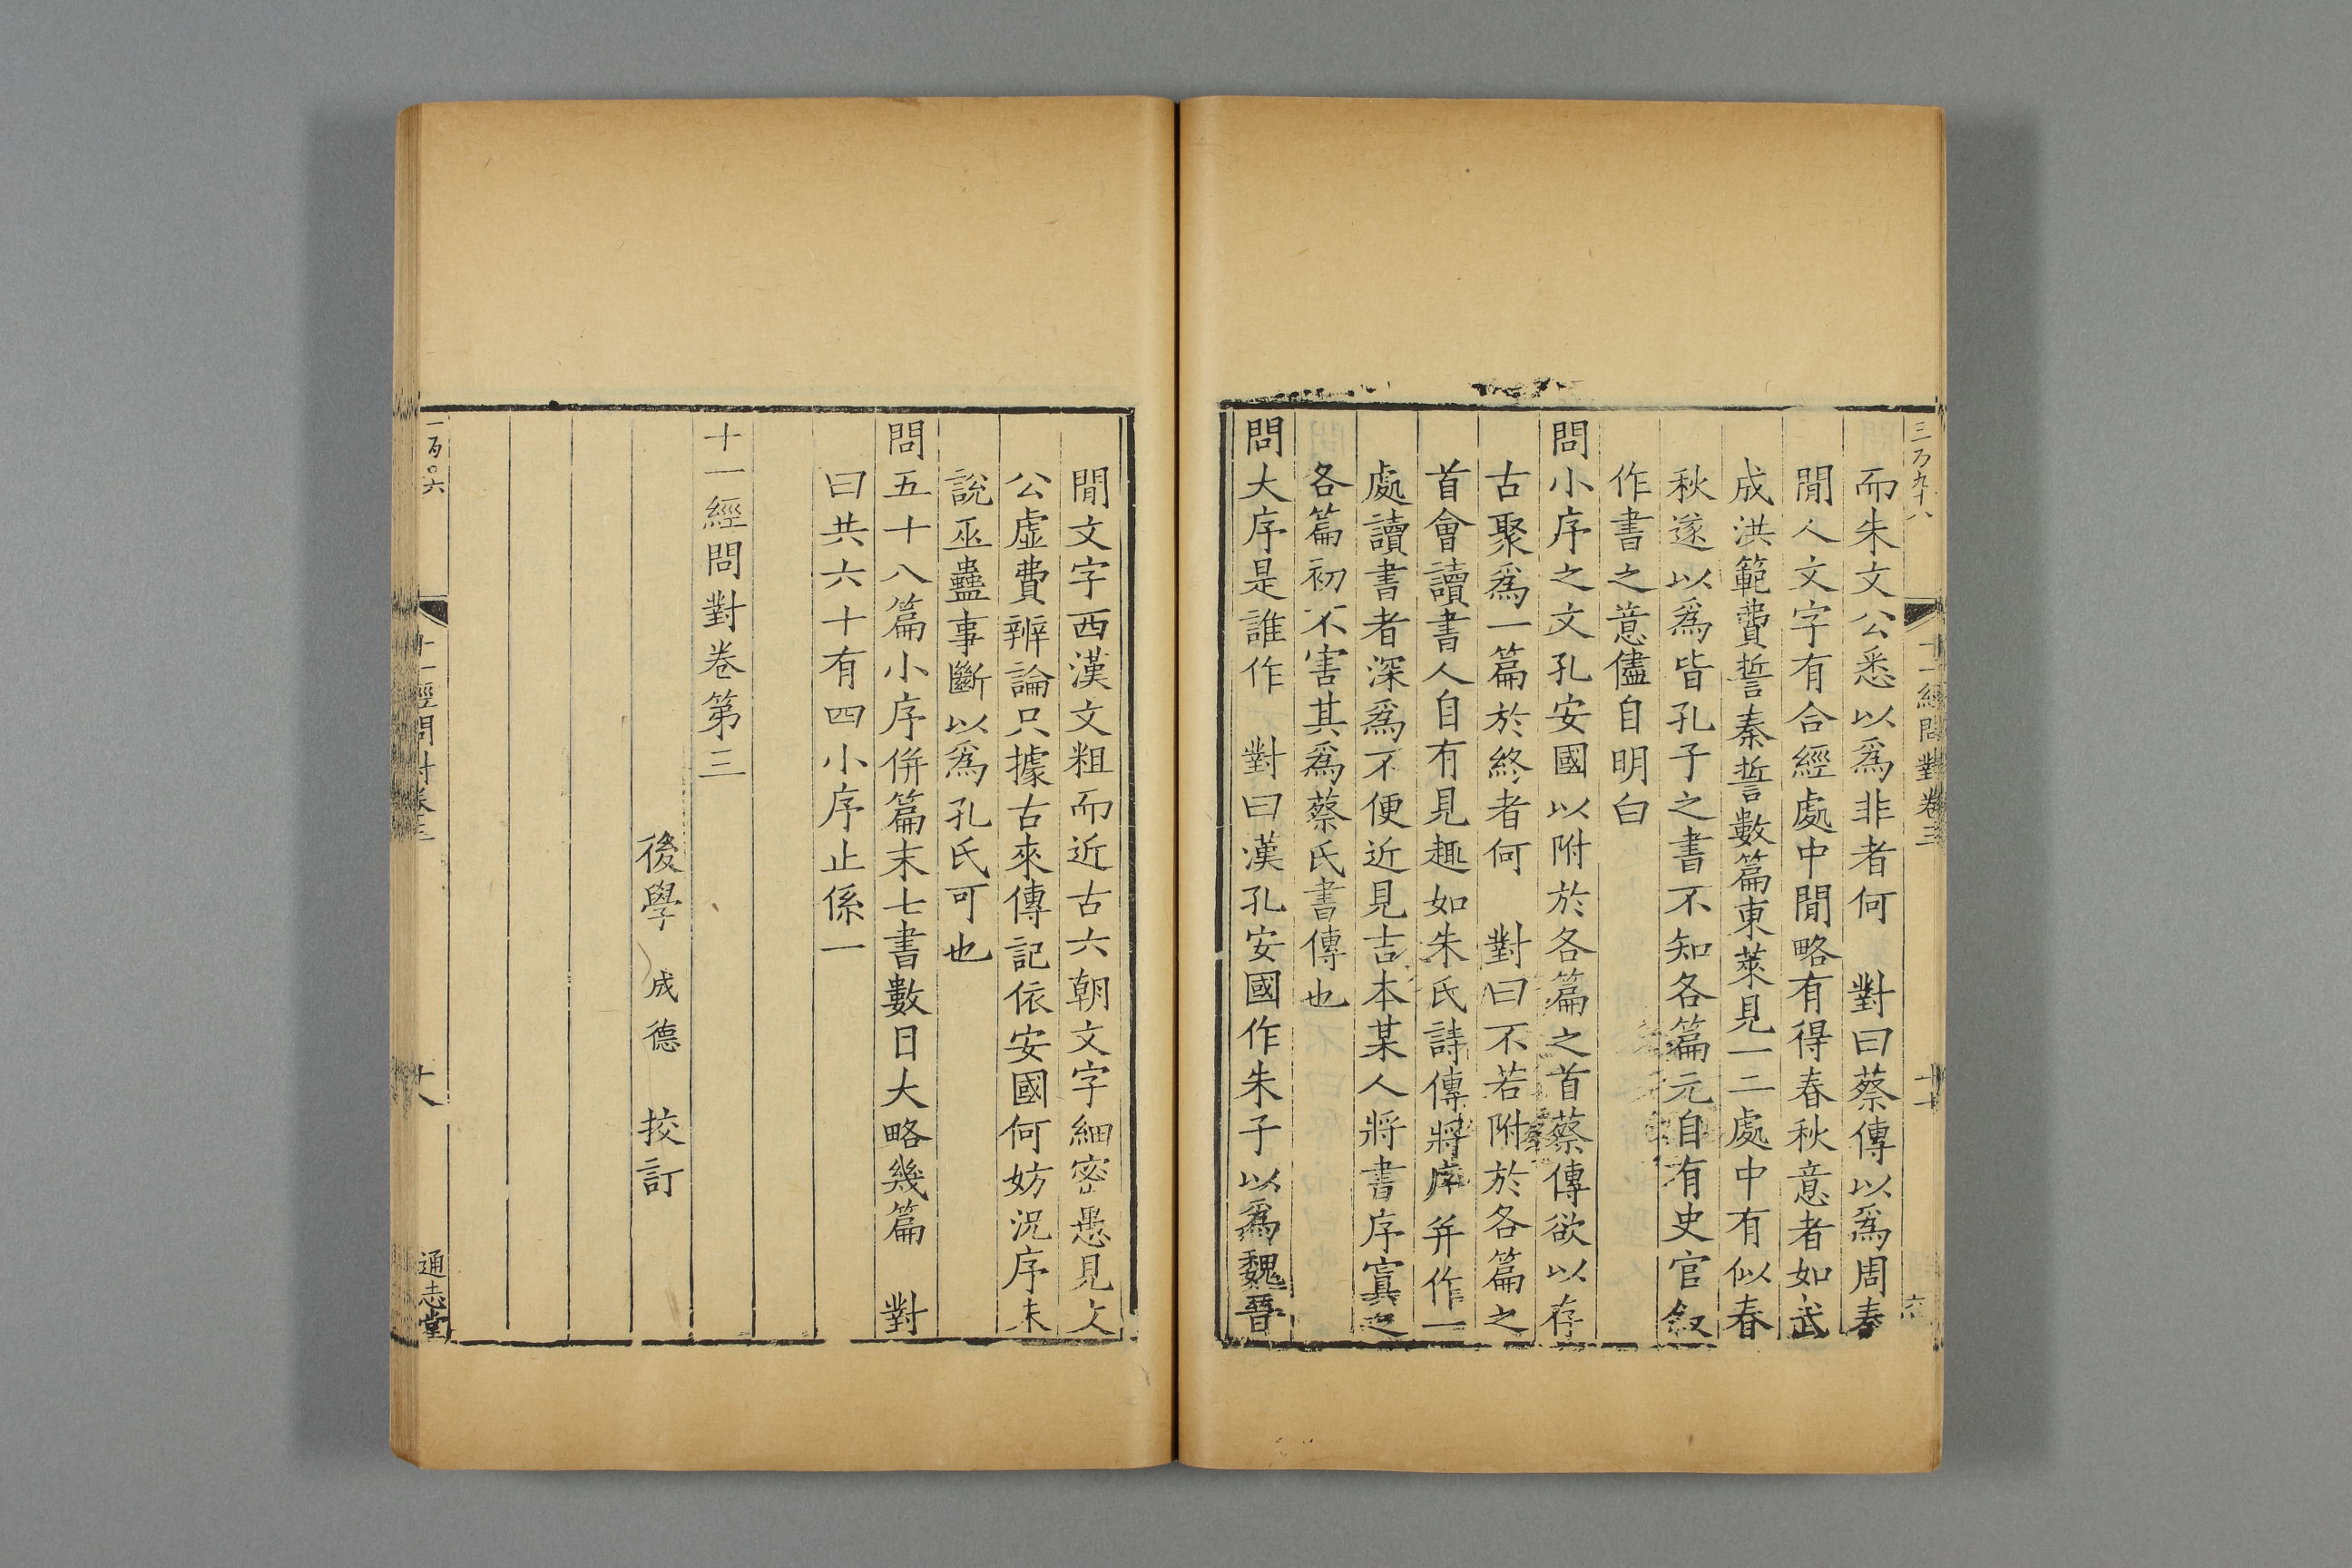 三百九十八
十一經問對卷三
六
而朱文公悉以爲非者何　對曰蔡傳以爲周春
閒人文字有合經處中閒略有得春秋意者如武
成洪範費誓秦誓數篇東萊見一二處中有似春
秋遂以爲皆孔子之書不知各篇元自有史官敘
作書之意儘自明白
問小序之文孔安國以附於各篇之首蔡傳欲以存
古聚爲一篇於終者何　對曰不若附於各篇之
首會讀書人自有見趣如朱氏詩傳將序并作一
處讀書者深爲不便近見吉本某人將書序寘之
各篇初不害其爲蔡氏書傳也
問大序是誰作　對曰漢孔安國作朱子以爲魏晉
閒文字西漢文粗而近古六朝文字細密愚見文
公虛費辨論只據古來傳記依安國何妨況序末
說巫蠱事斷以爲孔氏可也
問五十八篇小序併篇末七書數日大略幾篇　對
曰共六十有四小序止係一
十一經問對卷第三
後學　成德　挍訂
一百〇六
十一經問對卷三
十八
通志堂